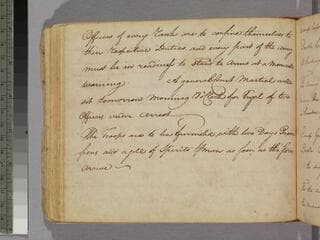 Officers of every Rank are to confine themselves to
their respective Duties and every part of the Army
must be in readiness to stand to Arms at a Moments
warning A general Court Martial will
sit tomorrow Morning for Tryal of two
Officers under Arrest
The Troops are to be furnish'd with two Days
and a of Spirits man as soon as the
arrive